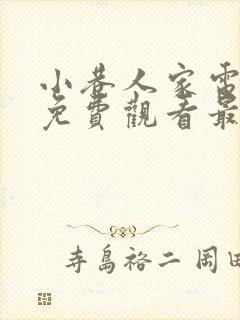 小巷人家電
免費觀看最
寺島裕二 岡田